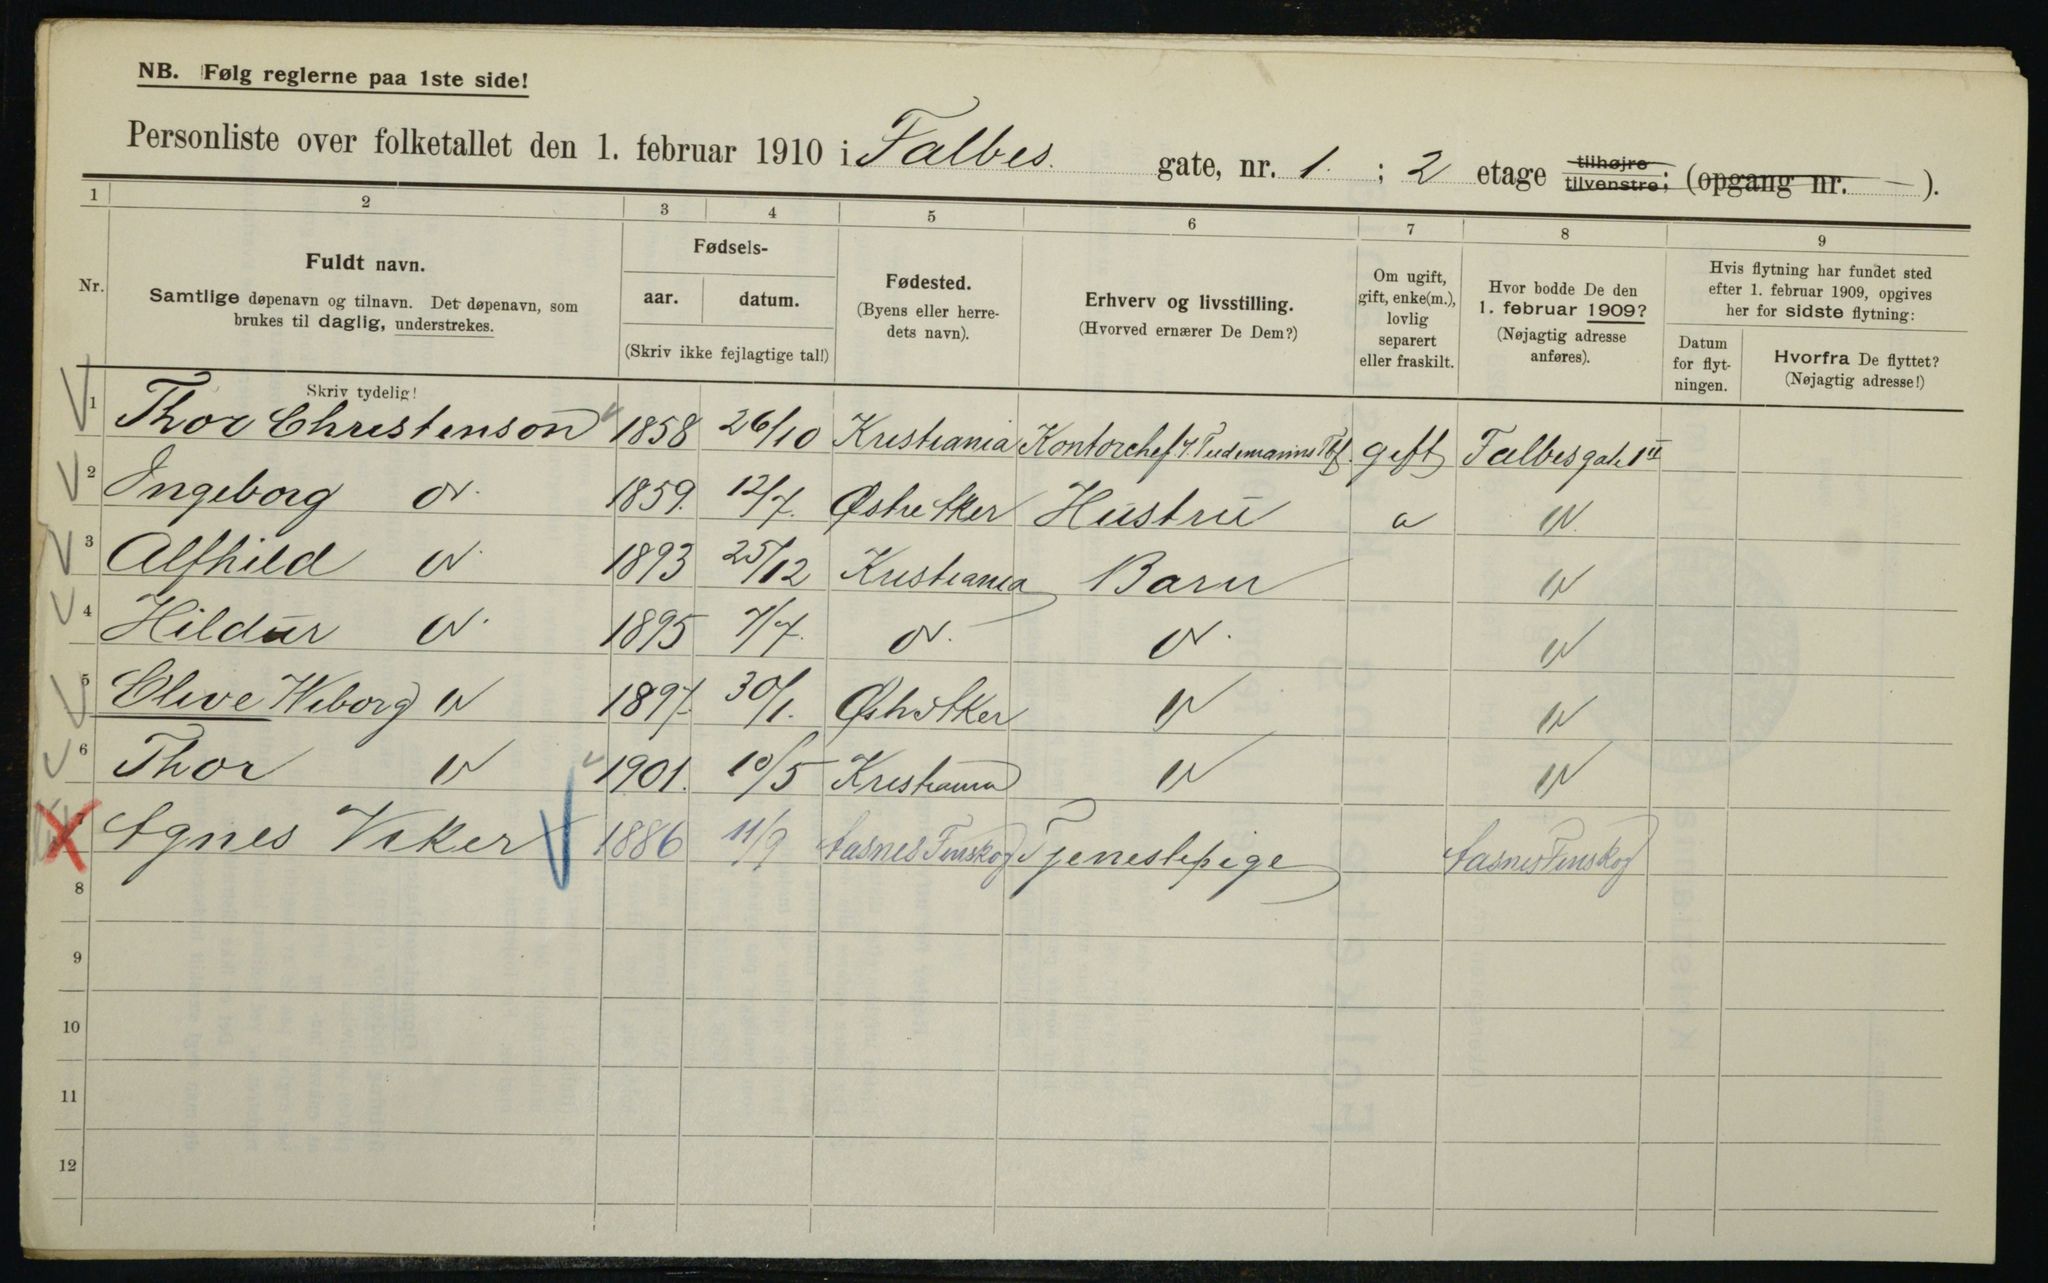 NB. Følg reglerne paa 1ste side!
Personliste over folketallet den 1. februar 1910 i Falbes gate, nr. 1. ; 2 etage tilhøjre tilvenstre; (opgang nr. — ).
1 2 3 4 5 6 7 8 9
Nr.
Fuldt navn.
Samtlige døpenavn og tilnavn. Det døpenavn, som
brukes til daglig, understrekes.
Skriv tydelig!
Fødsels-
aar. datum.
(Skriv ikke fejlagtige tal!)
Fødested.
(Byens eller herre-
dets navn).
Erhverv og livsstilling.
(Hvorved ernærer De Dem?)
Om ugift,
gift, enke(m.),
lovlig
separert
eller fraskilt.
Hvor bodde De den
1. februar 1909?
(Nøjagtig adresse
anføres).
Hvis flytning har fundet sted
efter 1. februar 1909, opgives
her for sidste flytning:
Datum
for flyt-
ningen.
Hvorfra De flyttet?
(Nøjagtig adresse!)
1 Thor Christenson 1858 26/10 Kristiania Kontorchef Tiedemanns Tbf. gift Falbesgate 1 II
2 Ingeborg " 1859. 12/7. Østre Aker Hustru " "
3 Alfhild " 1893 25/12 Kristiania Barn "
4 Hildur " 1895 7/7. " " "
5 Olive Wiborg " 1897. 30/1. Østr Aker " "
6 Thor " 1901. 10/5 Kristiania " "
7 Agnes Viker 1886 11/9 Aasnes Finskog Tjenestepige Aasnes Finskog
8
9
10
11
12